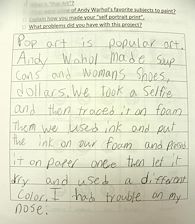 What is "Pop Art"?
of Andy Warhol's favorite subjects to paint?
Explain how you made your "self portrait print".
What problems did you have with this project?
Pop art is popular art.
Andy Wahol made Sup
Cans and womans Shoes,
dollars. We took a Selfie
and then traced it on foam
Them we used ink and put
the ink on our foam and Presed
it on paper once then let it
dry and used a different
Color. I had trouble on my
nose.